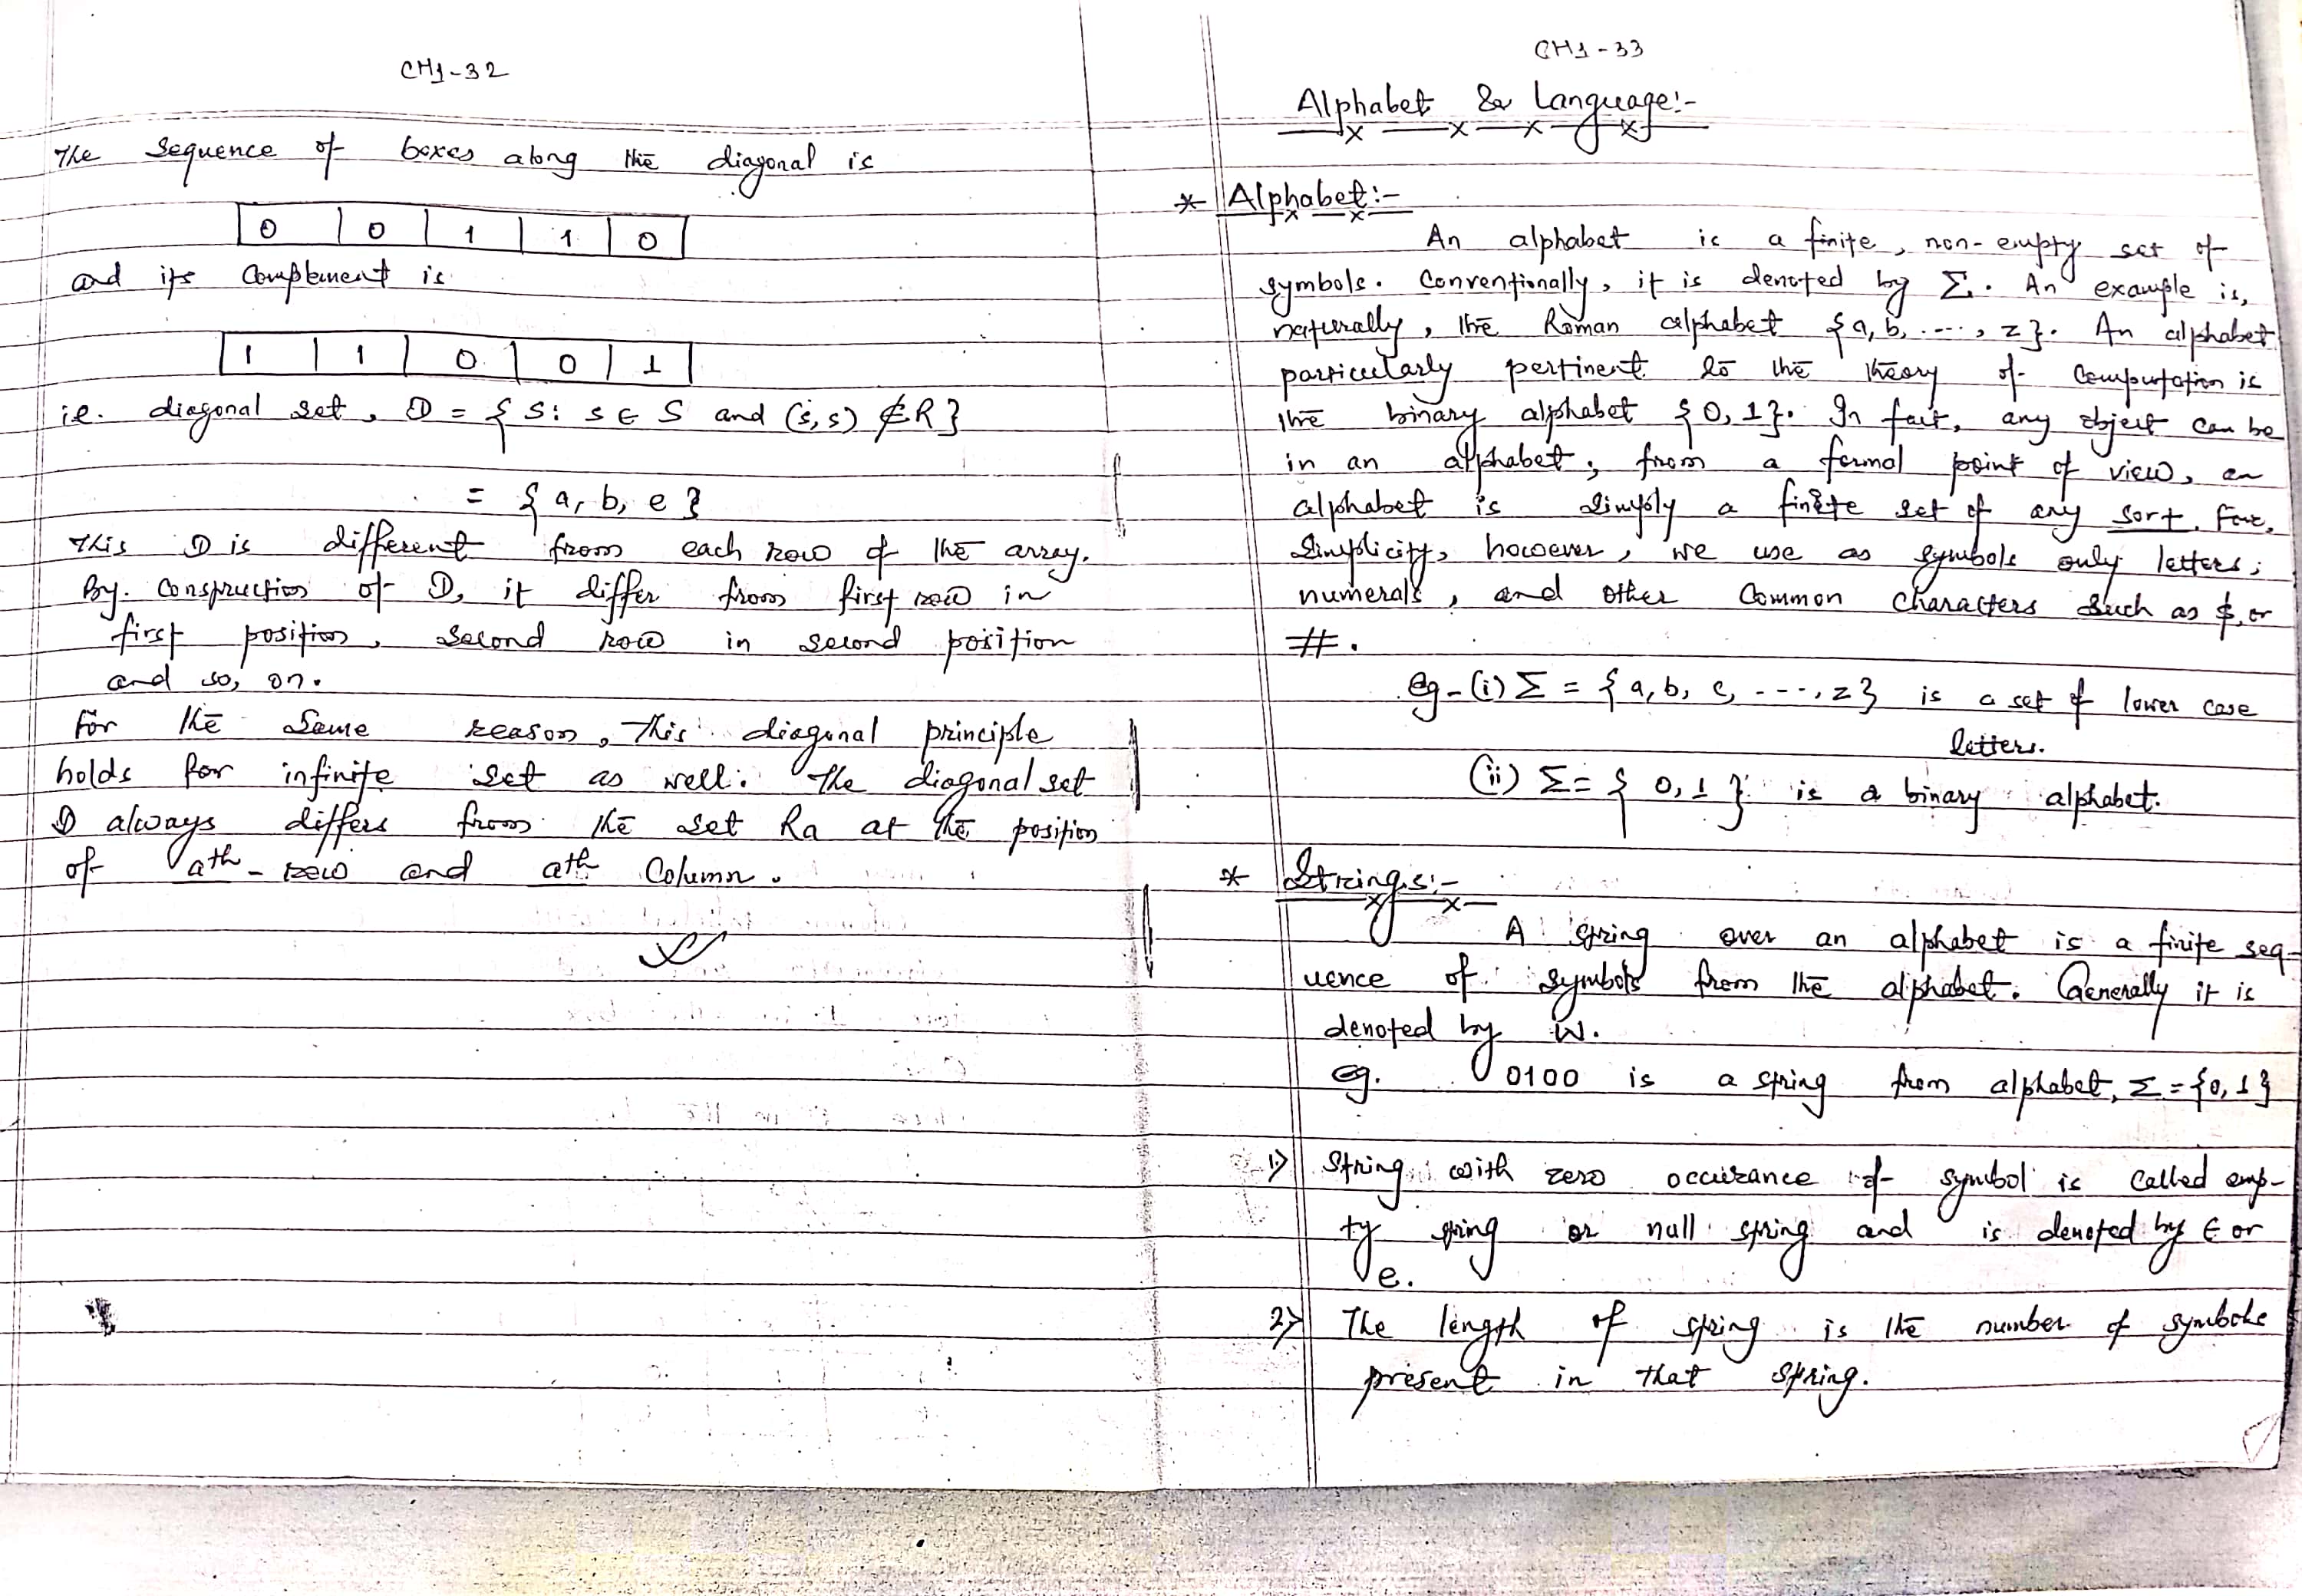 CH1-32
The sequence of boxes along the diagonal is
0 0 1 1 0
and its complement is
1 1 0 0 1
i.e. diagonal set, D = { s: s ∈ S and (s, s) ∉ R }
= { a, b, e }
This D is different from each row of the array.
By construction of D, it differ from first row in
first position, second row in second position
and so, on.
For the same reason, this diagonal principle
holds for infinite set as well. The diagonal set
D always differs from the set Ra at the position
of ath - row and ath column.
CH1-33
Alphabet & Language:-
* Alphabet:-
An alphabet is a finite, non-empty set of
symbols. Conventionally, it is denoted by Σ. An example is,
naturally, the Roman alphabet {a, b, ...., z}. An alphabet
particularly pertinent to the theory of computation is
the binary alphabet {0, 1}. In fact, any object can be
in an alphabet, from a formal point of view, an
alphabet is simply a finite set of any sort. For,
simplicity, however, we use as symbols only letters,
numerals, and other common characters such as $, or
#.
eg - (i) Σ = {a, b, c, ----, z} is a set of lower case
letters.
(ii) Σ = { 0, 1 } is a binary alphabet.
* Strings:-
A string over an alphabet is a finite seq-
uence of symbols from the alphabet. Generally it is
denoted by W.
eg. 0100 is a string from alphabet, Σ = {0, 1}
1) String with zero occurance of symbol is called emp-
ty string or null string and is denoted by ϵ or
e.
2) The length of string is the number of symbols
present in that string.